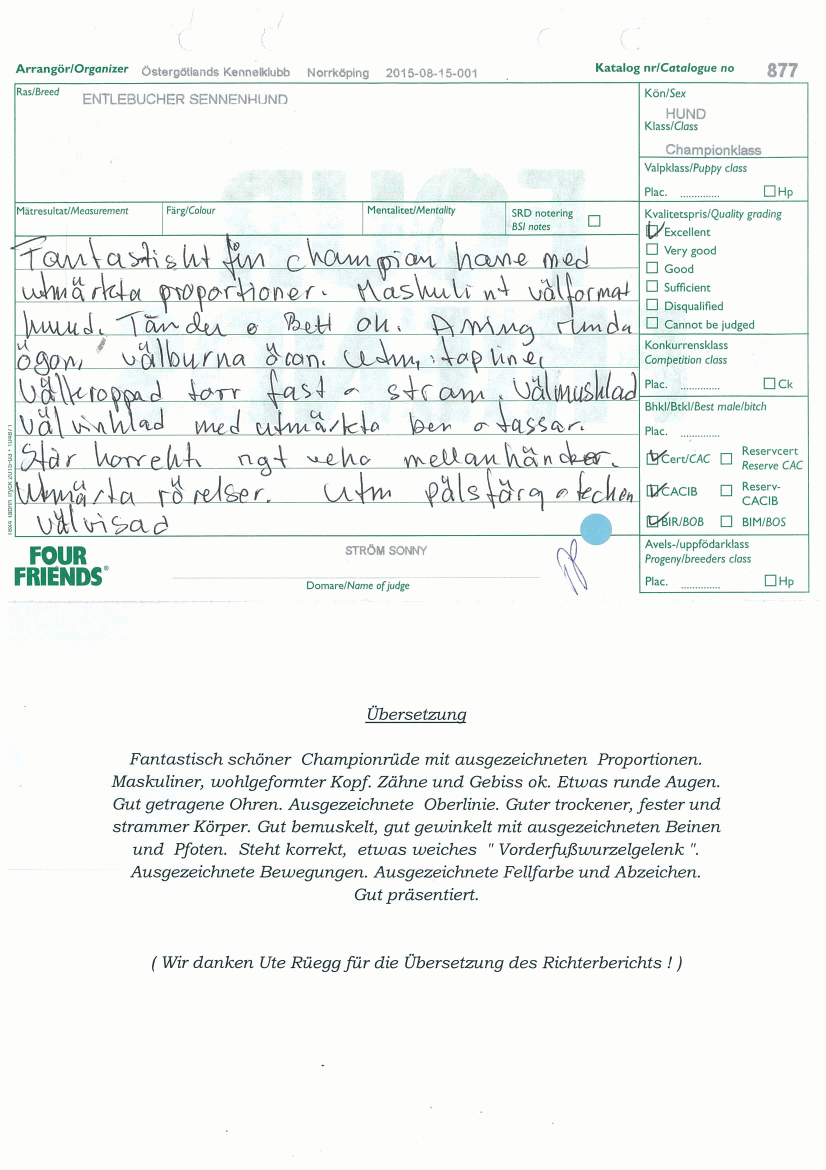 Arrangör/Organizer Östergötlands Kennelklubb Norrköping 2015-08-15-001 Katalog nr/Catalogue no 877
Ras/Breed ENTLEBUCHER SENNENHUND
Kön/Sex
HUND
Klass/Class
Championklass
Valpklass/Puppy class
Plac. .............. Hp
Mätresultat/Measurement Färg/Colour Mentalitet/Mentality SRD notering
BSI notes
Kvalitetspris/Quality grading
Excellent
Very good
Good
Sufficient
Disqualified
Cannot be judged
Konkurrensklass
Competition class
Plac. .............. Ck
Bhkl/Btkl/Best male/bitch
Plac. ..............
Cert/CAC Reservcert
Reserve CAC
CACIB Reserv-
CACIB
BIR/BOB BIM/BOS
Avels-/uppfödarklass
Progeny/breeders class
Plac. .............. Hp
Fantastiskt fin champion hane med
utmärkta proportioner. Maskulint välformat
huvud. Tänder o Bett ok. Aning runda
ögon, välburna öron. Utm.
Välkroppad torr fast o stram. Välmusklad
Välvinklad med utmärkta ben o tassar.
Står korrekt ngt veka mellanhänder.
Utmärta rörelser. Utm pälsfärg o tecken
välvisad
FOUR
FRIENDS®
STRÖM SONNY
Domare/Name of judge
Übersetzung
Fantastisch schöner Championrüde mit ausgezeichneten Proportionen.
Maskuliner, wohlgeformter Kopf. Zähne und Gebiss ok. Etwas runde Augen.
Gut getragene Ohren. Ausgezeichnete Oberlinie. Guter trockener, fester und
strammer Körper. Gut bemuskelt, gut gewinkelt mit ausgezeichneten Beinen
und Pfoten. Steht korrekt, etwas weiches " Vorderfußwurzelgelenk ".
Ausgezeichnete Bewegungen. Ausgezeichnete Fellfarbe und Abzeichen.
Gut präsentiert.
( Wir danken Ute Rüegg für die Übersetzung des Richterberichts ! )